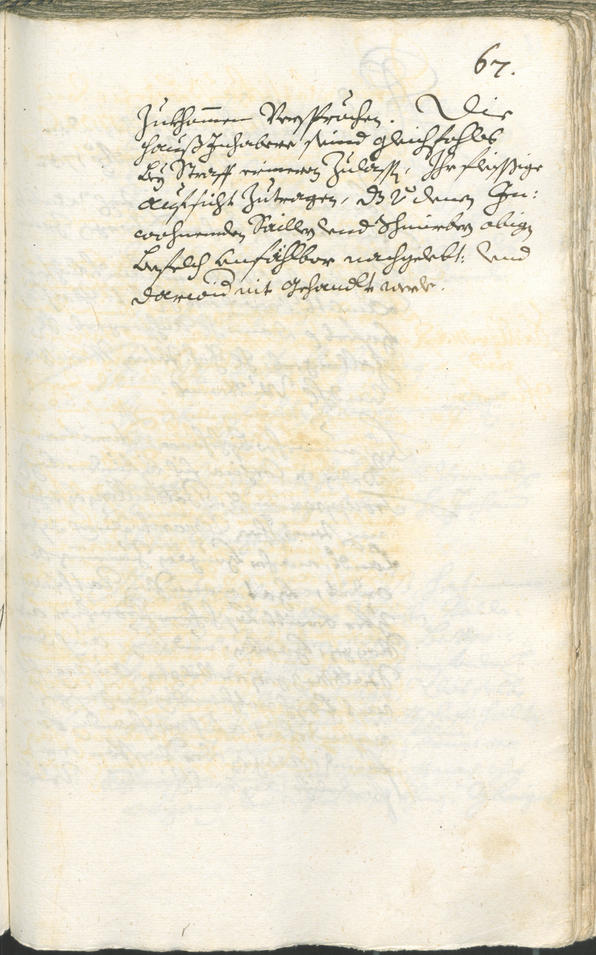 67.
Zukhomen Versprochen. Die
Haußinhabere seind gleichfohls
bey Straff zulassen, Ihr fleissige
Aufsicht Zutragen, dz v denen In:
wohnenden Sailler und Schnierber obigen
Befelch Unfählbar nachgelebt: und
darwid nit gehandlt werde.